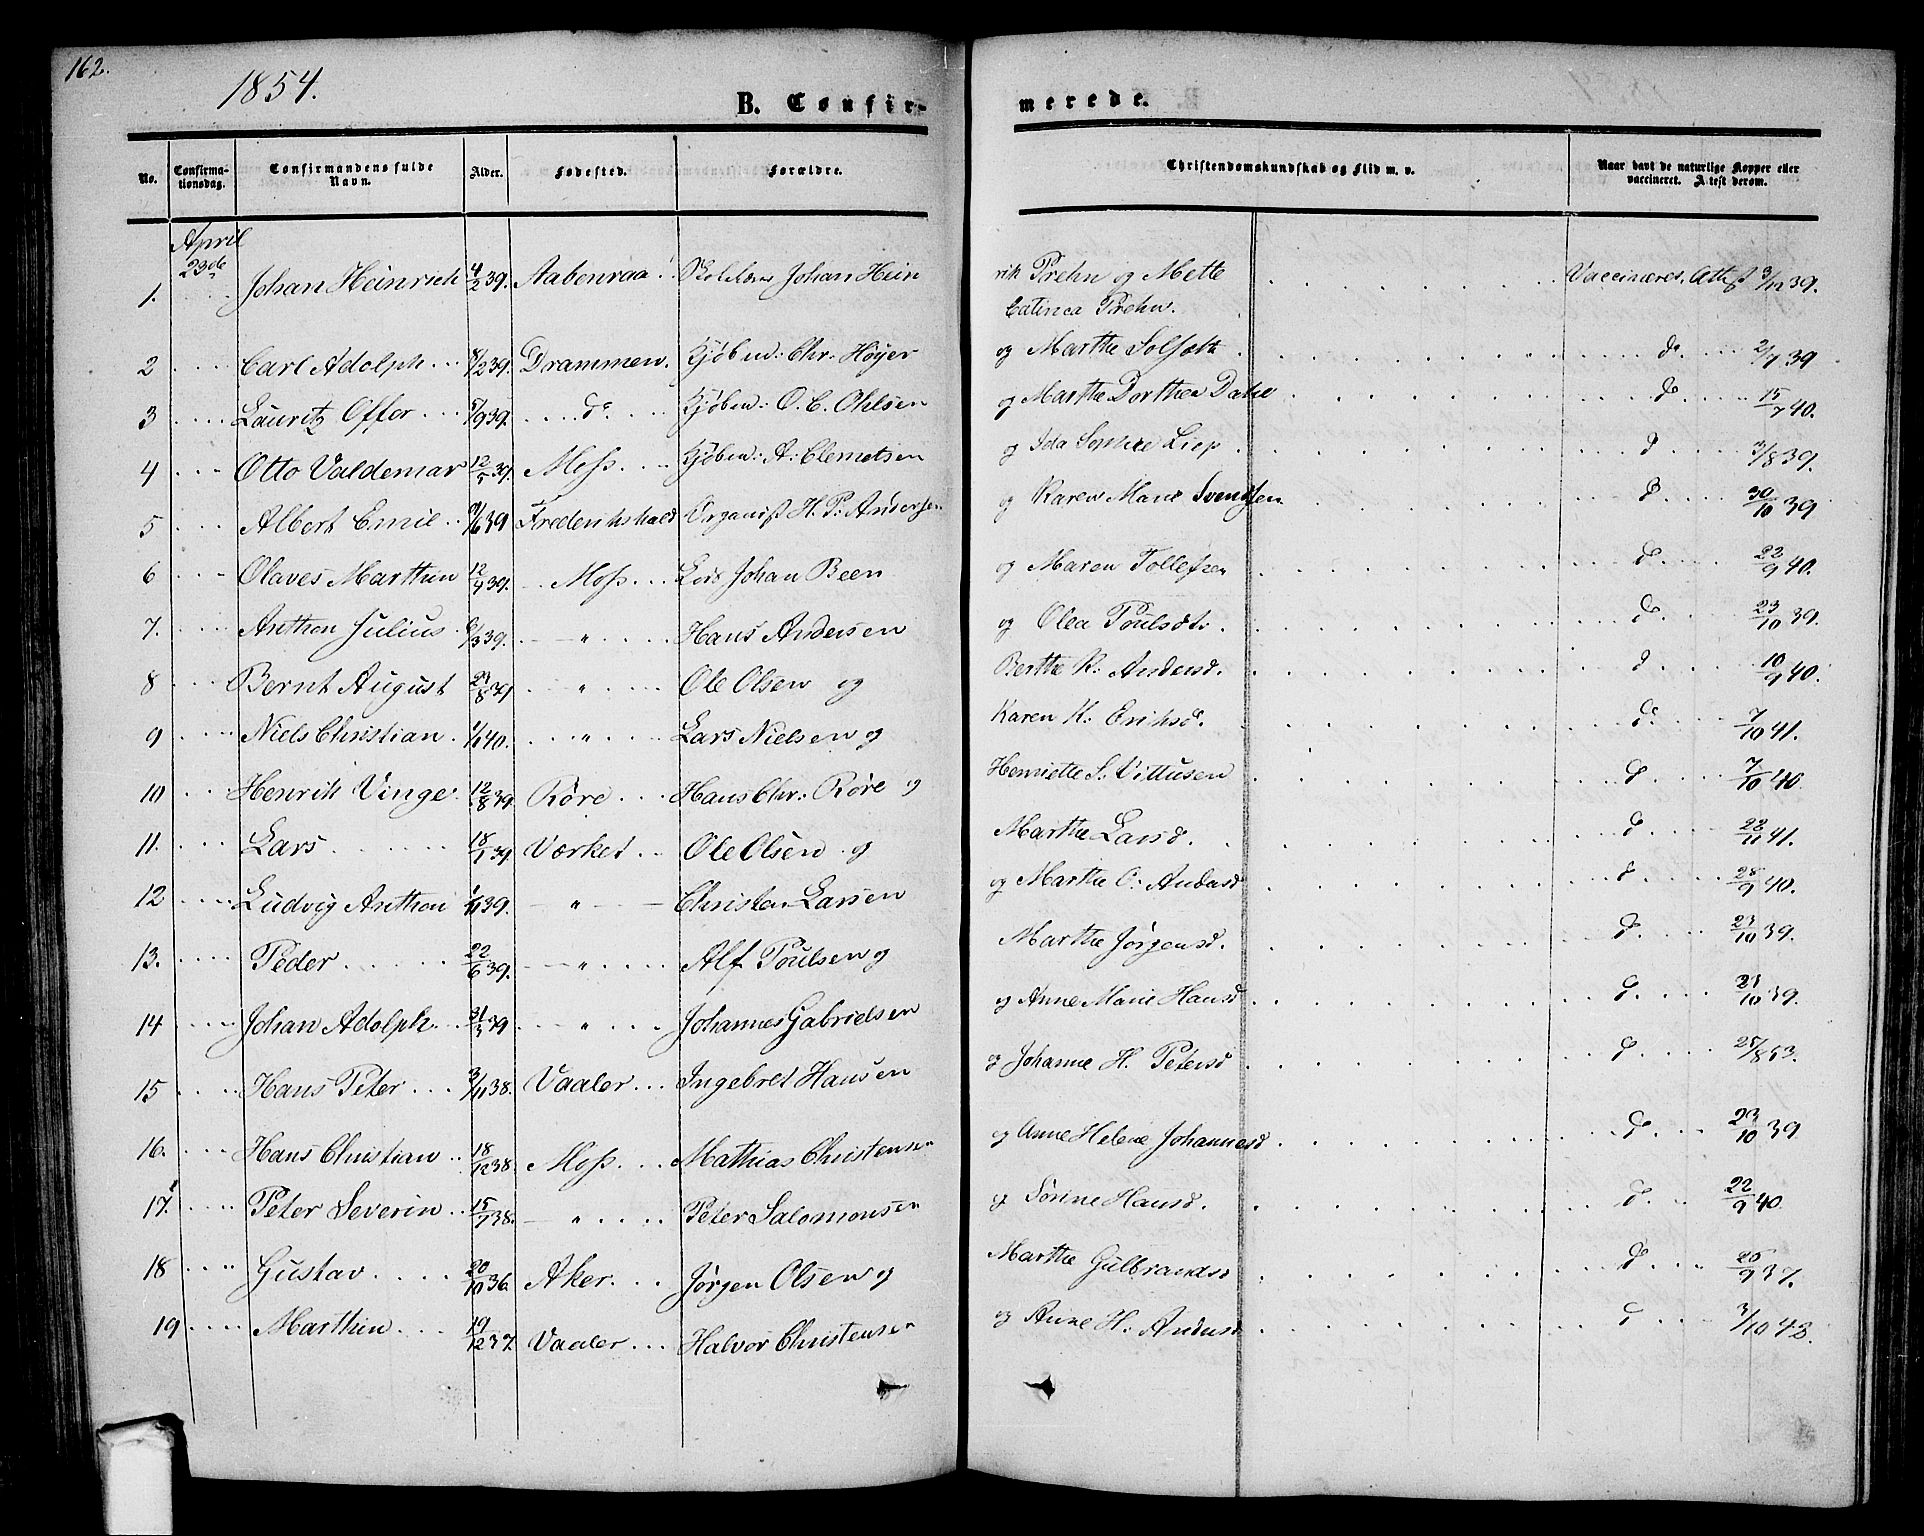 162.
1854.
B. Confirmerede.
No. Confirmationsdag. Confirmandens fulde Navn. Alder. Fødested. Forældre. Christendomskundskab og Flid m. v. Naar havt de naturlige Kopper eller vaccineret. Attest derom.
April
23de
1. Johan Heinrich 4/2 39. Aabenraa Johan Heinrik Prehn og Mette Vaccineret, Attest 3/12 39.
Catinca Prehn.
2 Carl Adolph 8/2 39. Drammen. Kjøbm: Chr: Høyer og Marthe do 2/7 39
3 Lauritz Offer 5/9 39. do Kjøbm: O. C. Ohlsen og Marthe Dorthea do 15/7 40.
4 Otto Valdemar 12/5 39. Moss Kjøbm: A: Clemetsen og Ida Sophie d 3/8 39.
5 Albert Emil 9/6 39 Frederikshald Organist H. P. Andersen og Karen Marie Svendsen d 30/10 39
6 Olaves Marthin 12/4 39. Moss Lars Johan Been og Maren Tollefsen d 22/9 40.
7. Anthon Julius 6/3 39. " Hans Andersen og Olea Poulsdt. do 23/10 39.
8 Bernt August 24/8 39 " Ole Olsen og Berthe K: Andersd. d 10/9 40.
9 Niels Christian 1/1 40. " Lars Nielsen og Karen K: Eriksd. do 7/10 41.
10 Henrik Vinge 12/8 39. Røre Hans Chr: Røre og Henriette S. Vittusen d 7/10 40.
11. Lars 18/1 39 Værket Ole Olsen og Marthe Larsd. d 22/11 41.
12 Ludvig Anthon 1/11 39. " Christen Larsen og Marthe C: Andersd d 28/9 40.
13. Peder 22/6 39. " Alf Poulsen og Marthe Jørgensd. d 23/10 39.
14 Johan Adolph 21/3 39 " Johannes Gabrielsen og Anne Marie Hansd d 23/10 39.
15 Hans Peter 3/11 38. Vaaler Ingebret Hansen og Johanne H. Petersd d 25/8 53.
16. Hans Christian 18/12 38. Moss Mathias Christensen og Anne Helene Johannesd d 23/10 39
17. Peter Severin 15/7 38. " Peter Salomonsen og Sørine Hansd. d 22/9 40.
18 Gustav 20/10 36. Aker Jørgen Olsen og Marthe Gulbrandsd d 26/9 37.
19 Marthin 19/12 37. Vaaler Halvor Christensen og Anne H: Andersd d 3/10 48.